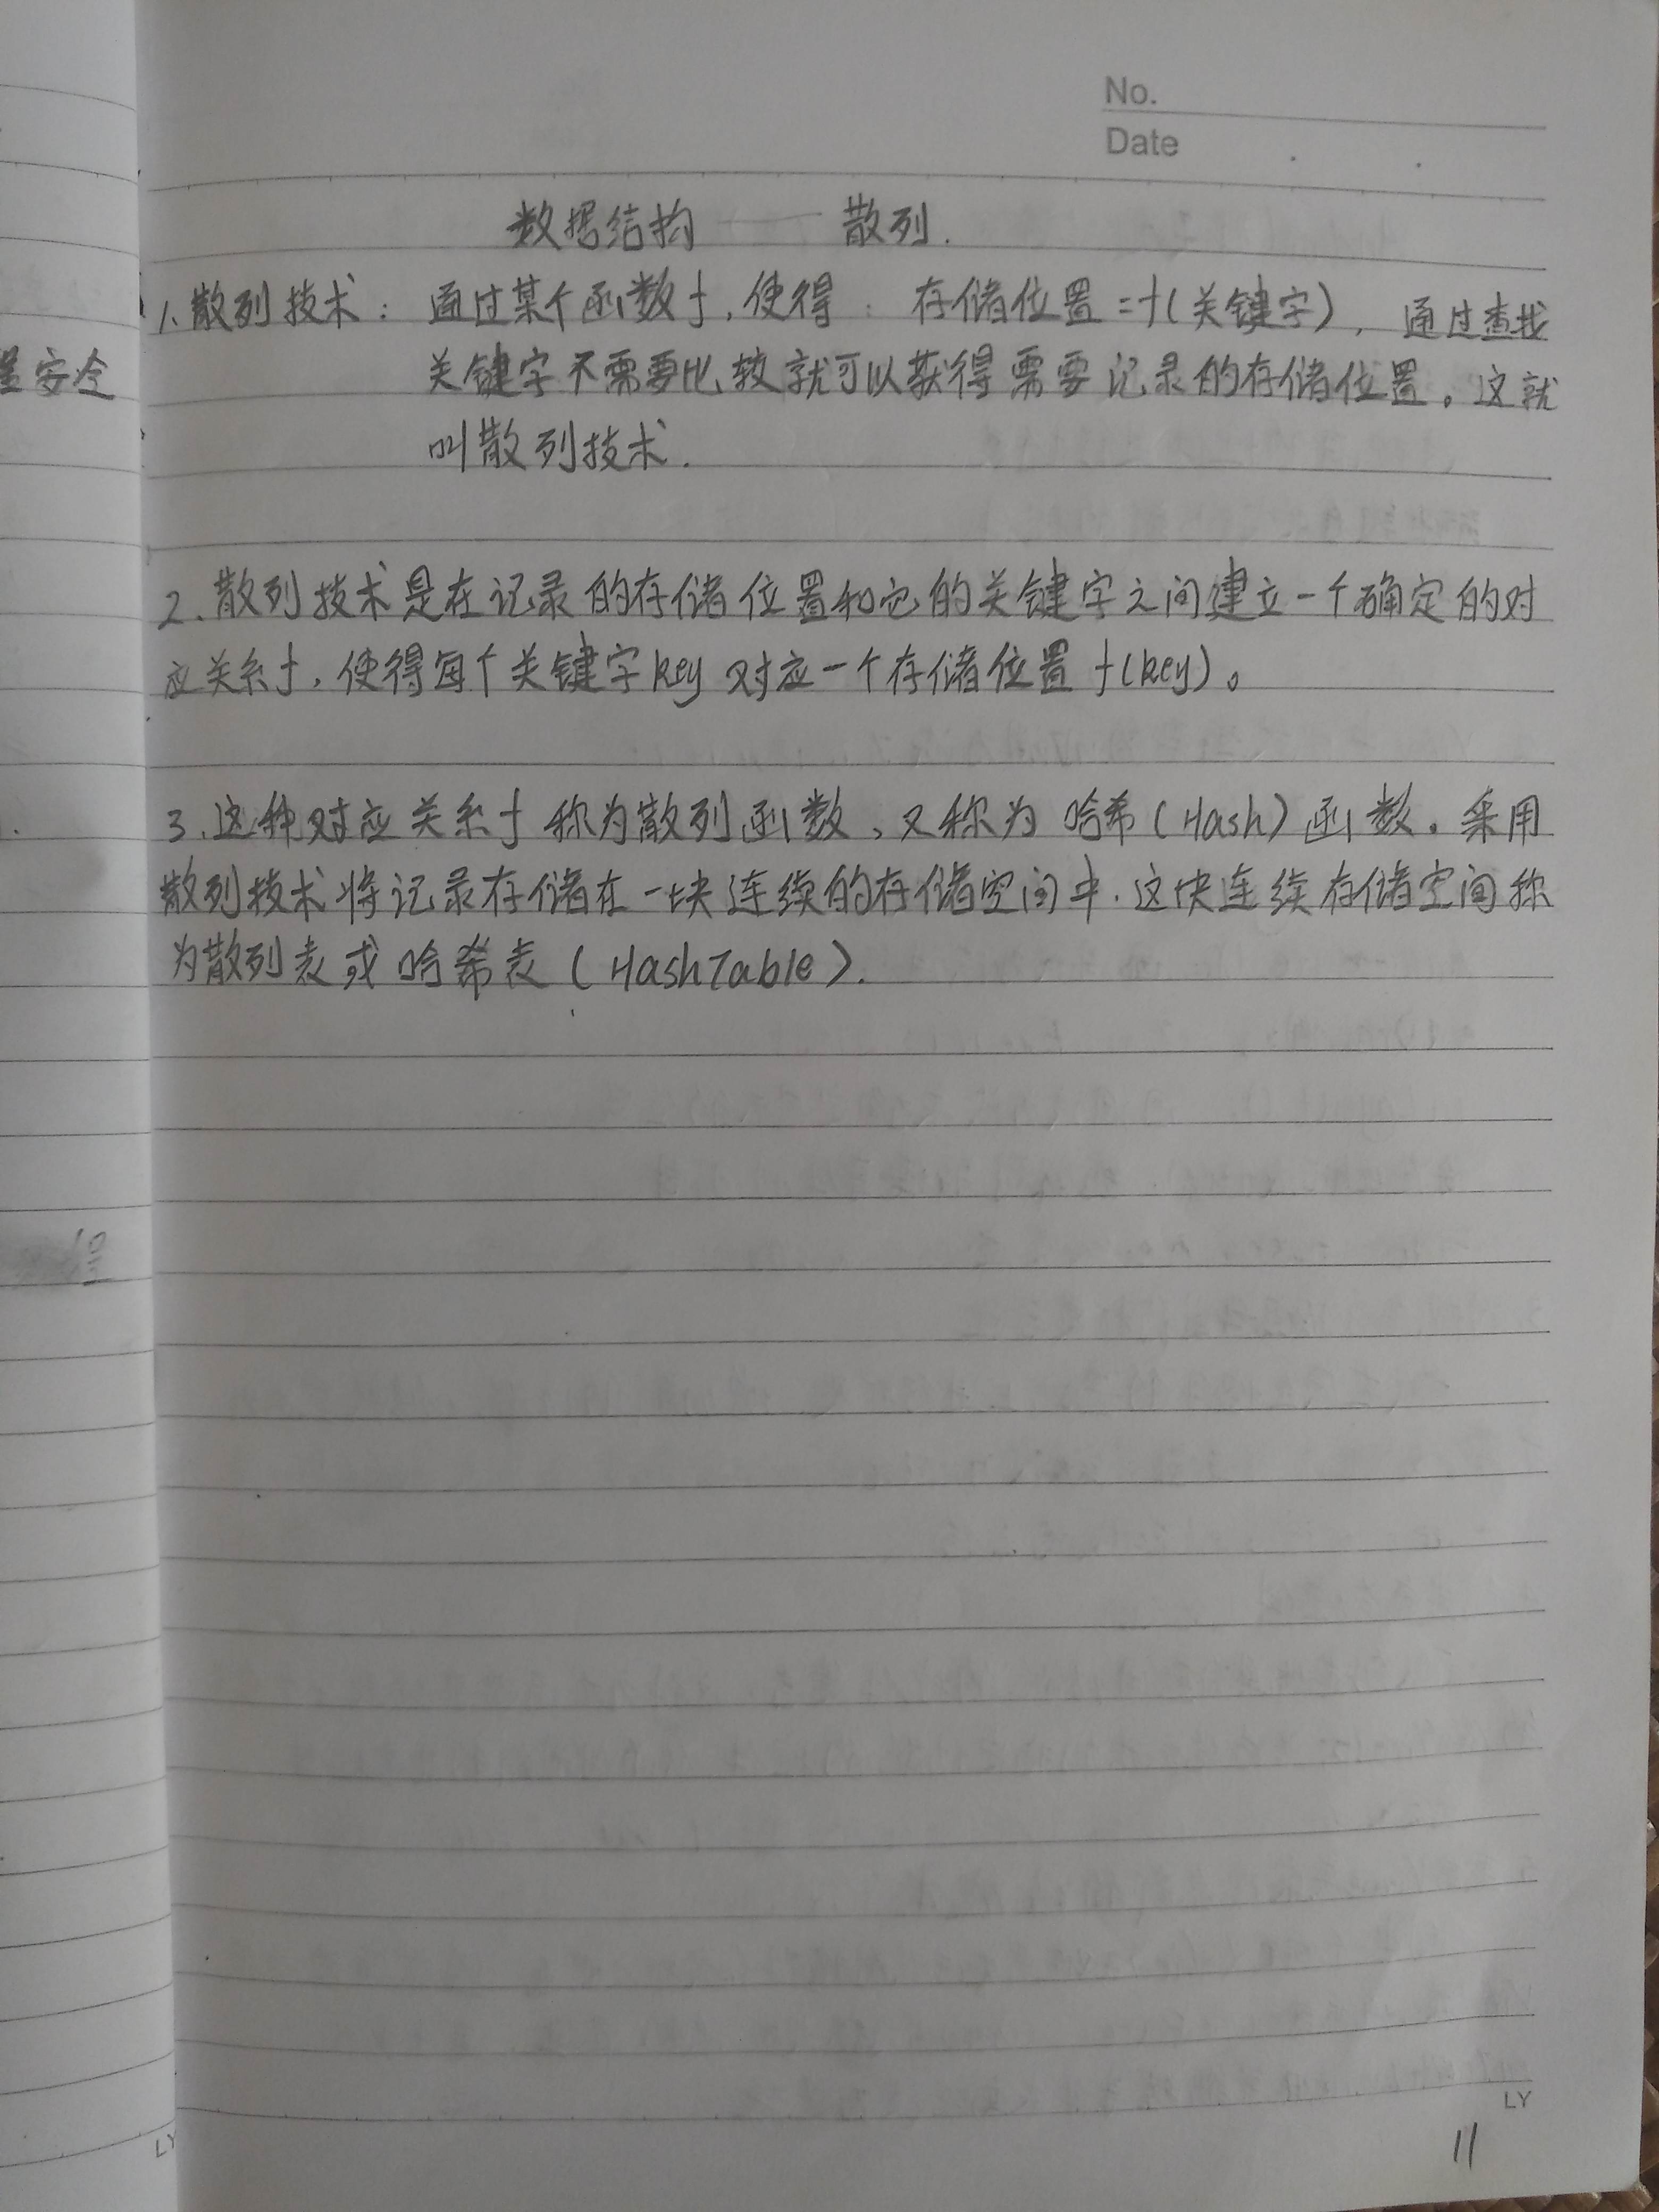 No.
Date
数据结构 —— 散列.
1. 散列技术: 通过某个函数f,使得: 存储位置=f(关键字), 通过查找
关键字不需要比较就可以获得需要记录的存储位置。这就
叫散列技术.
2.散列技术是在记录的存储位置和它的关键字之间建立一个确定的对
应关系f,使得每个关键字key对应一个存储位置f(key)。
3.这种对应关系f称为散列函数、又称为哈希(Hash)函数。采用
散列技术将记录存储在一块连续的存储空间中.这块连续存储空间称
为散列表或哈希表(HashTable).
安全
LY
LY
11